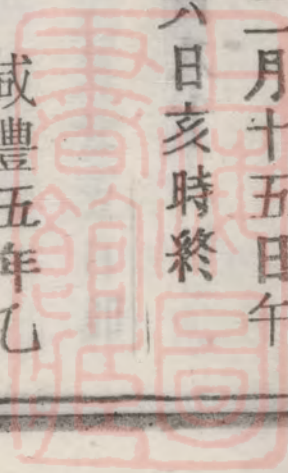 月十五日午
八日亥時終
咸豐五年乙